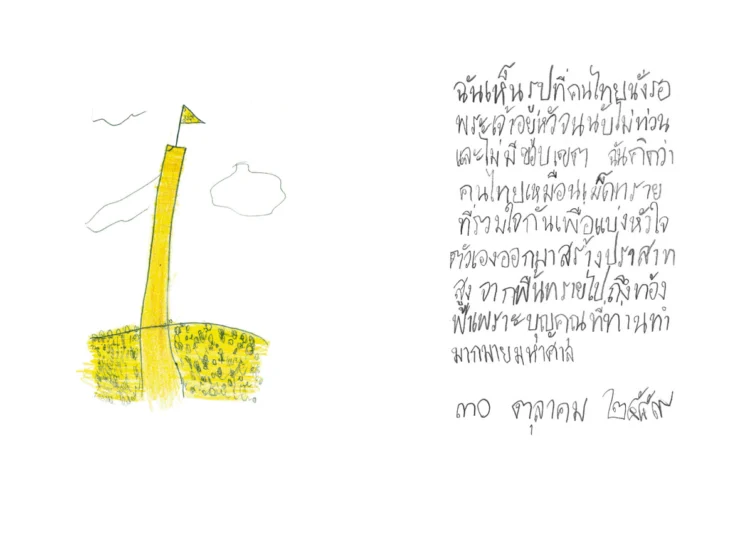 ฉันเห็นรูปที่คนไทยนั่งรอ
พระเจ้าอยู่หัวจนนับไม่ถ้วน
และไม่มีขอบเขตา ฉันคิดว่า
คนไทยเหมือนเม็ดทราย
ที่รวมใจกันเพื่อแบ่งหัวใจ
ตัวเองออกมาสร้างปราสาท
สูง จากพื้นทรายไปถึงท้อง
ฟ้าเพราะบุญคุณที่ท่านทำ
มากมายมหาศาล
๓๐ ตุลาคม ๒๕๕๙